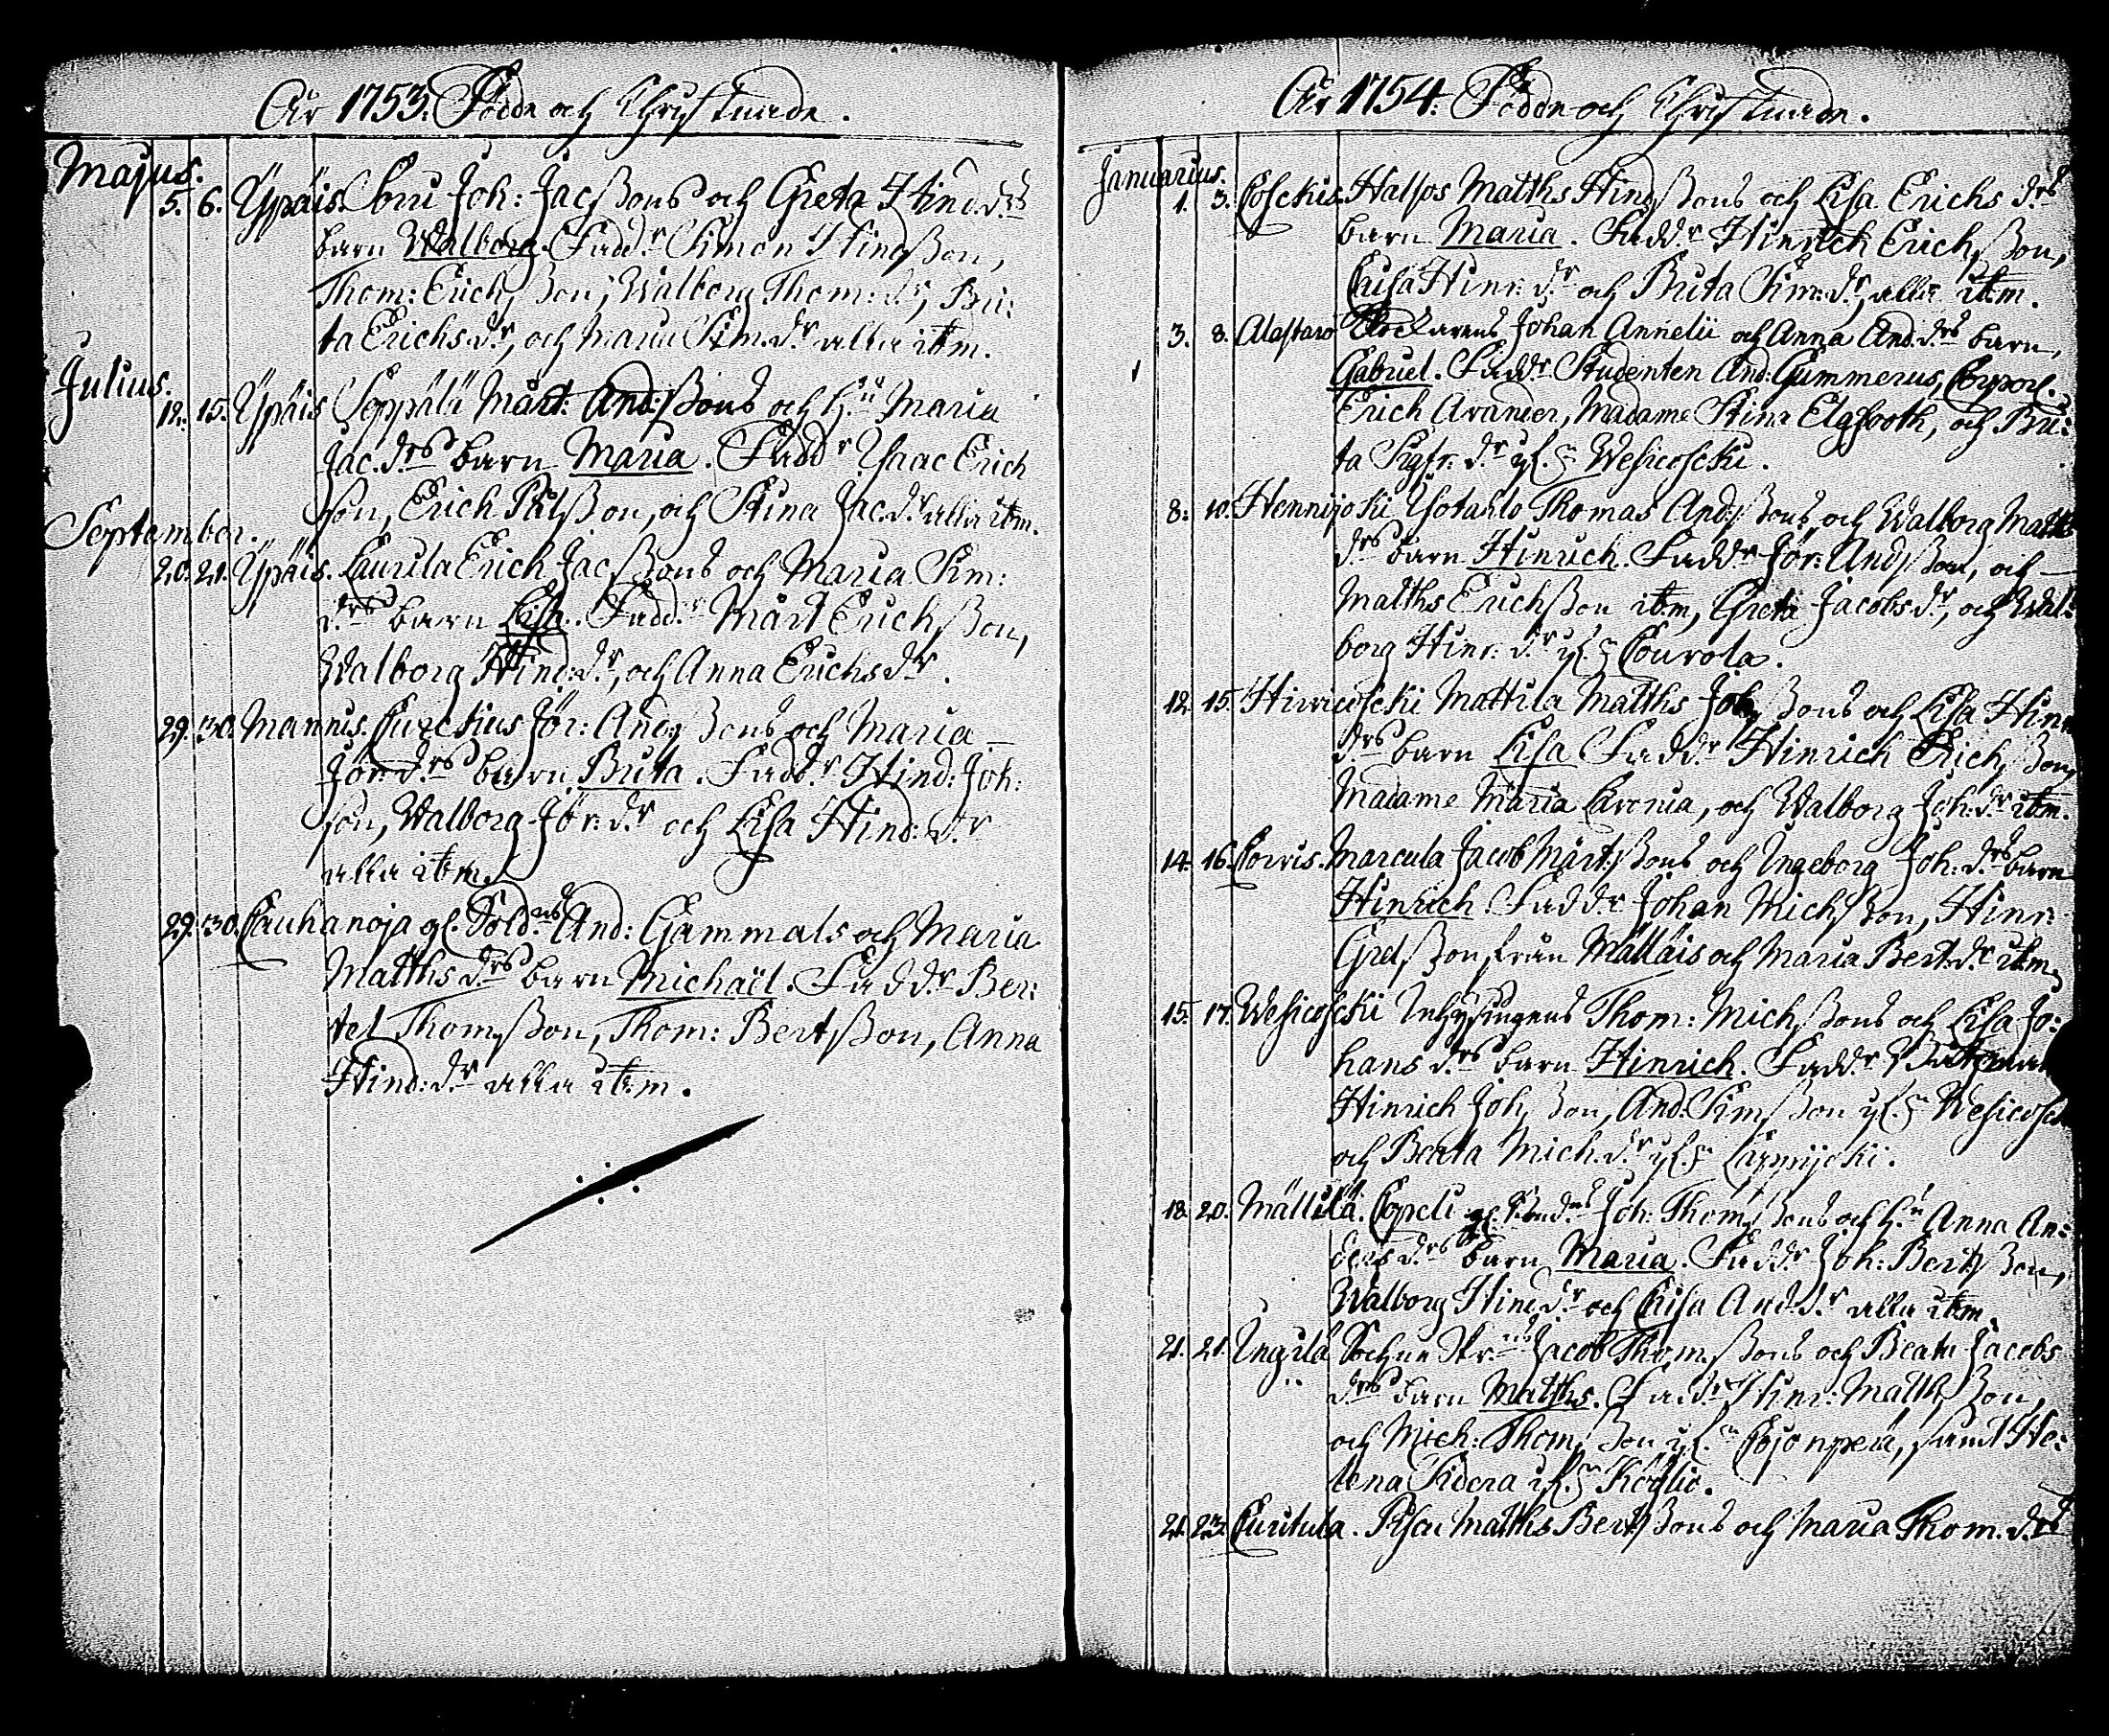 År 1753. Födde och Christnade.
Majus.
5. 6. Ypäis. Sorri Joh: Jacßons och Greta Hind.drs
barn Walborg. Fadd.r Simon Hindßon,
Thom: Erichßon, Walborg Thom: dr, Bri:
ta Erichsdr, och Maria Sim.dr alla ib.m.
Julius.
12. 15. Ypäis Seppälä Mårt: And:ßons och h:u Maria
Jac.drs barn Maria. Fadd.r Ysaac Erich
son, Erich Pålßon, och Stina Jac.dr alla ib.m.
September.
20. 21. Ypäis. Laurila Erich Jacßons och Maria Sim:
drs barn Lisa. Fadd.r Mårt Erichßon,
Walborg Hind:dr, och Anna Erichsdr.
29. 30. Mannis. Jör: Andßons och Maria
Jör.drs barn Brita. Fadd.r Hind: Joh:
son, Walborg Jör:dr och Lisa Hind:dr
alla ib.m.
29. 30. Cauhanoja gl. Sold.ns And: Gammals och Maria
Matths drs barn Michaël. Fadd.r Ber:
tel Thomßon, Thom: Bertßon, Anna
Hind:dr alla ib.m.
År 1754. Födde och Christnade.
Januarius.
1. 3. Coskis. Halsos Matths Hindßons och Lisa Erichs drs
barn Maria. Fadd.r Hinrich Erichßon,
Caisa Hinr:dr och Brita Sim:dr, alla ib.m.
3. 8. Alastaro Klockarens Johan Annelii och Anna And.drs barn,
Gabriel. Fadd.r Studenten And: Gummerus, Corporl.
Erich Avander, Madame Stina Elgfooth, och Bri:
ta Sigfr:dr ifr. Wesicoski.
8. 10. Hennijoki Ysotahlo Thomas Andßons, och Walborg Matths
drs barn Hinrich. Fadd.r Jör: Andßon, och
Matths Erichßon ib.m, Greta Jacobsdr, och Wal:
borg Hinr:dr ifr. Courola.
12. 15. Hirvicoski Mattila Matths Johßons och Lisa Hinr
drs barn Lisa Fadd.r Hinrich Erichßon,
Madame Maria, och Walborg Joh:dr ib.m.
14. 16. Corvis. Marcula Jacob Mårt:ßons och Ingeborg Joh:drs barn
Hinrich. Fadd.r Johan Michßon, Hinr:
Grelsßon från Mälläis och Maria Bert:dr ib.m.
15. 17. Wesicoski Inhysingens Thom: Michßons och Lisa Jo:
hans drs barn Hinrich. Fadd.r
Hinrich Johßon, And: Simßon ifr. Wesicosk
och Beata Mich.dr ifr. Lammijoki.
18. 20. Mällilä. Copeli Joh: Thomßons och h:u Anna An:
ders drs barn Maria. Fadd.r Joh: Bertßon,
Walborg Hind:dr och Caisa And:dr alla ib.m.
21. 21. Ungilä Jacob Thom.ßons och Beata Jacobs
drs barn Matths. Fadd.r Hinr: Matthßon,
och Mich: Thomßon ifr. Cojonperä, samt He:
lena Sidera ifr. Kiöÿliö.
21. 23. Curitula. Matths Bertßons och Maria Thom.drs